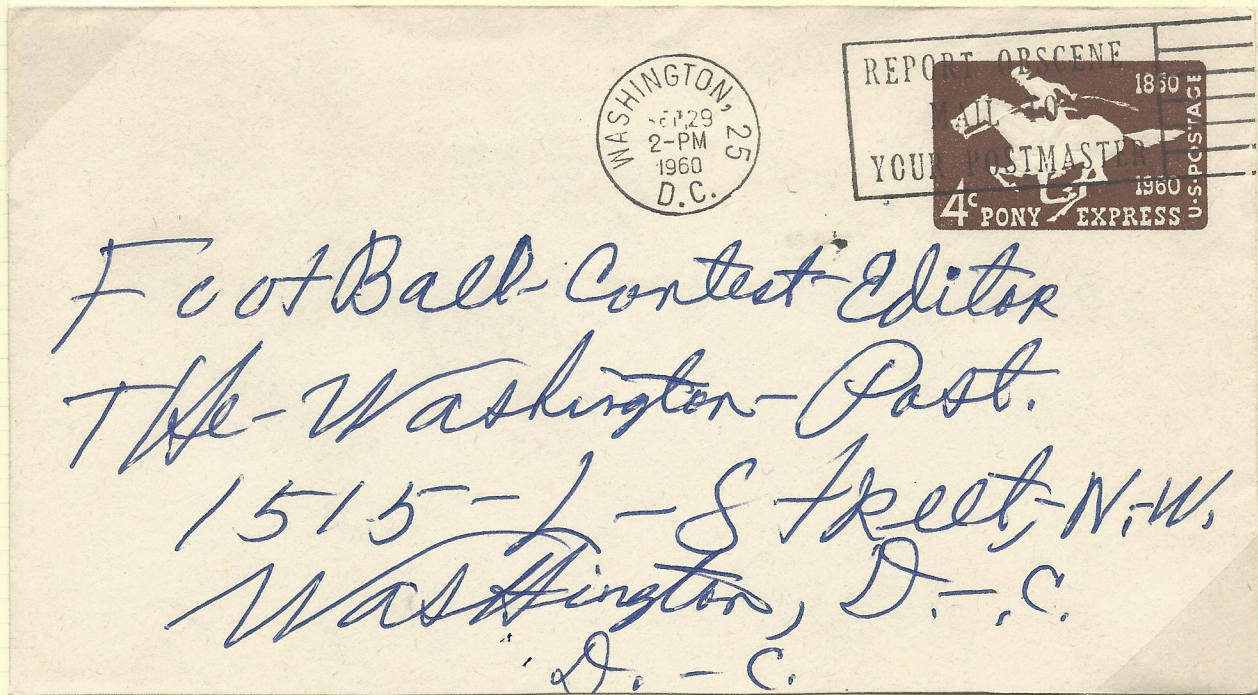 WASHINGTON, 25
SEP 29
2-PM
1960
D.C.
REPORT OBSCENE
MAIL TO
YOUR POSTMASTER
1860
1960
U·S·POSTAGE
4c PONY EXPRESS
FootBall-Contest-Editor
THe-Washington-Post.
1515-L-Street,-N.-W.
WasHington, D.-.C.
D.-C.